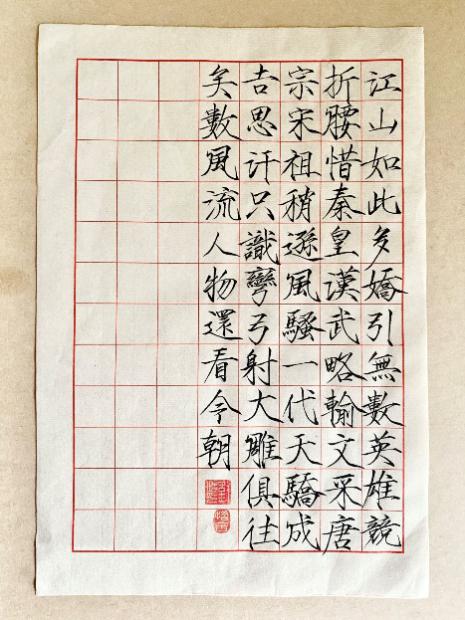 江山如此多嬌引無數英雄競
折腰惜秦皇漢武略輸文采唐
宗宋祖稍遜風騷一代天驕成
吉思汗只識彎弓射大雕俱往
矣數風流人物還看今朝